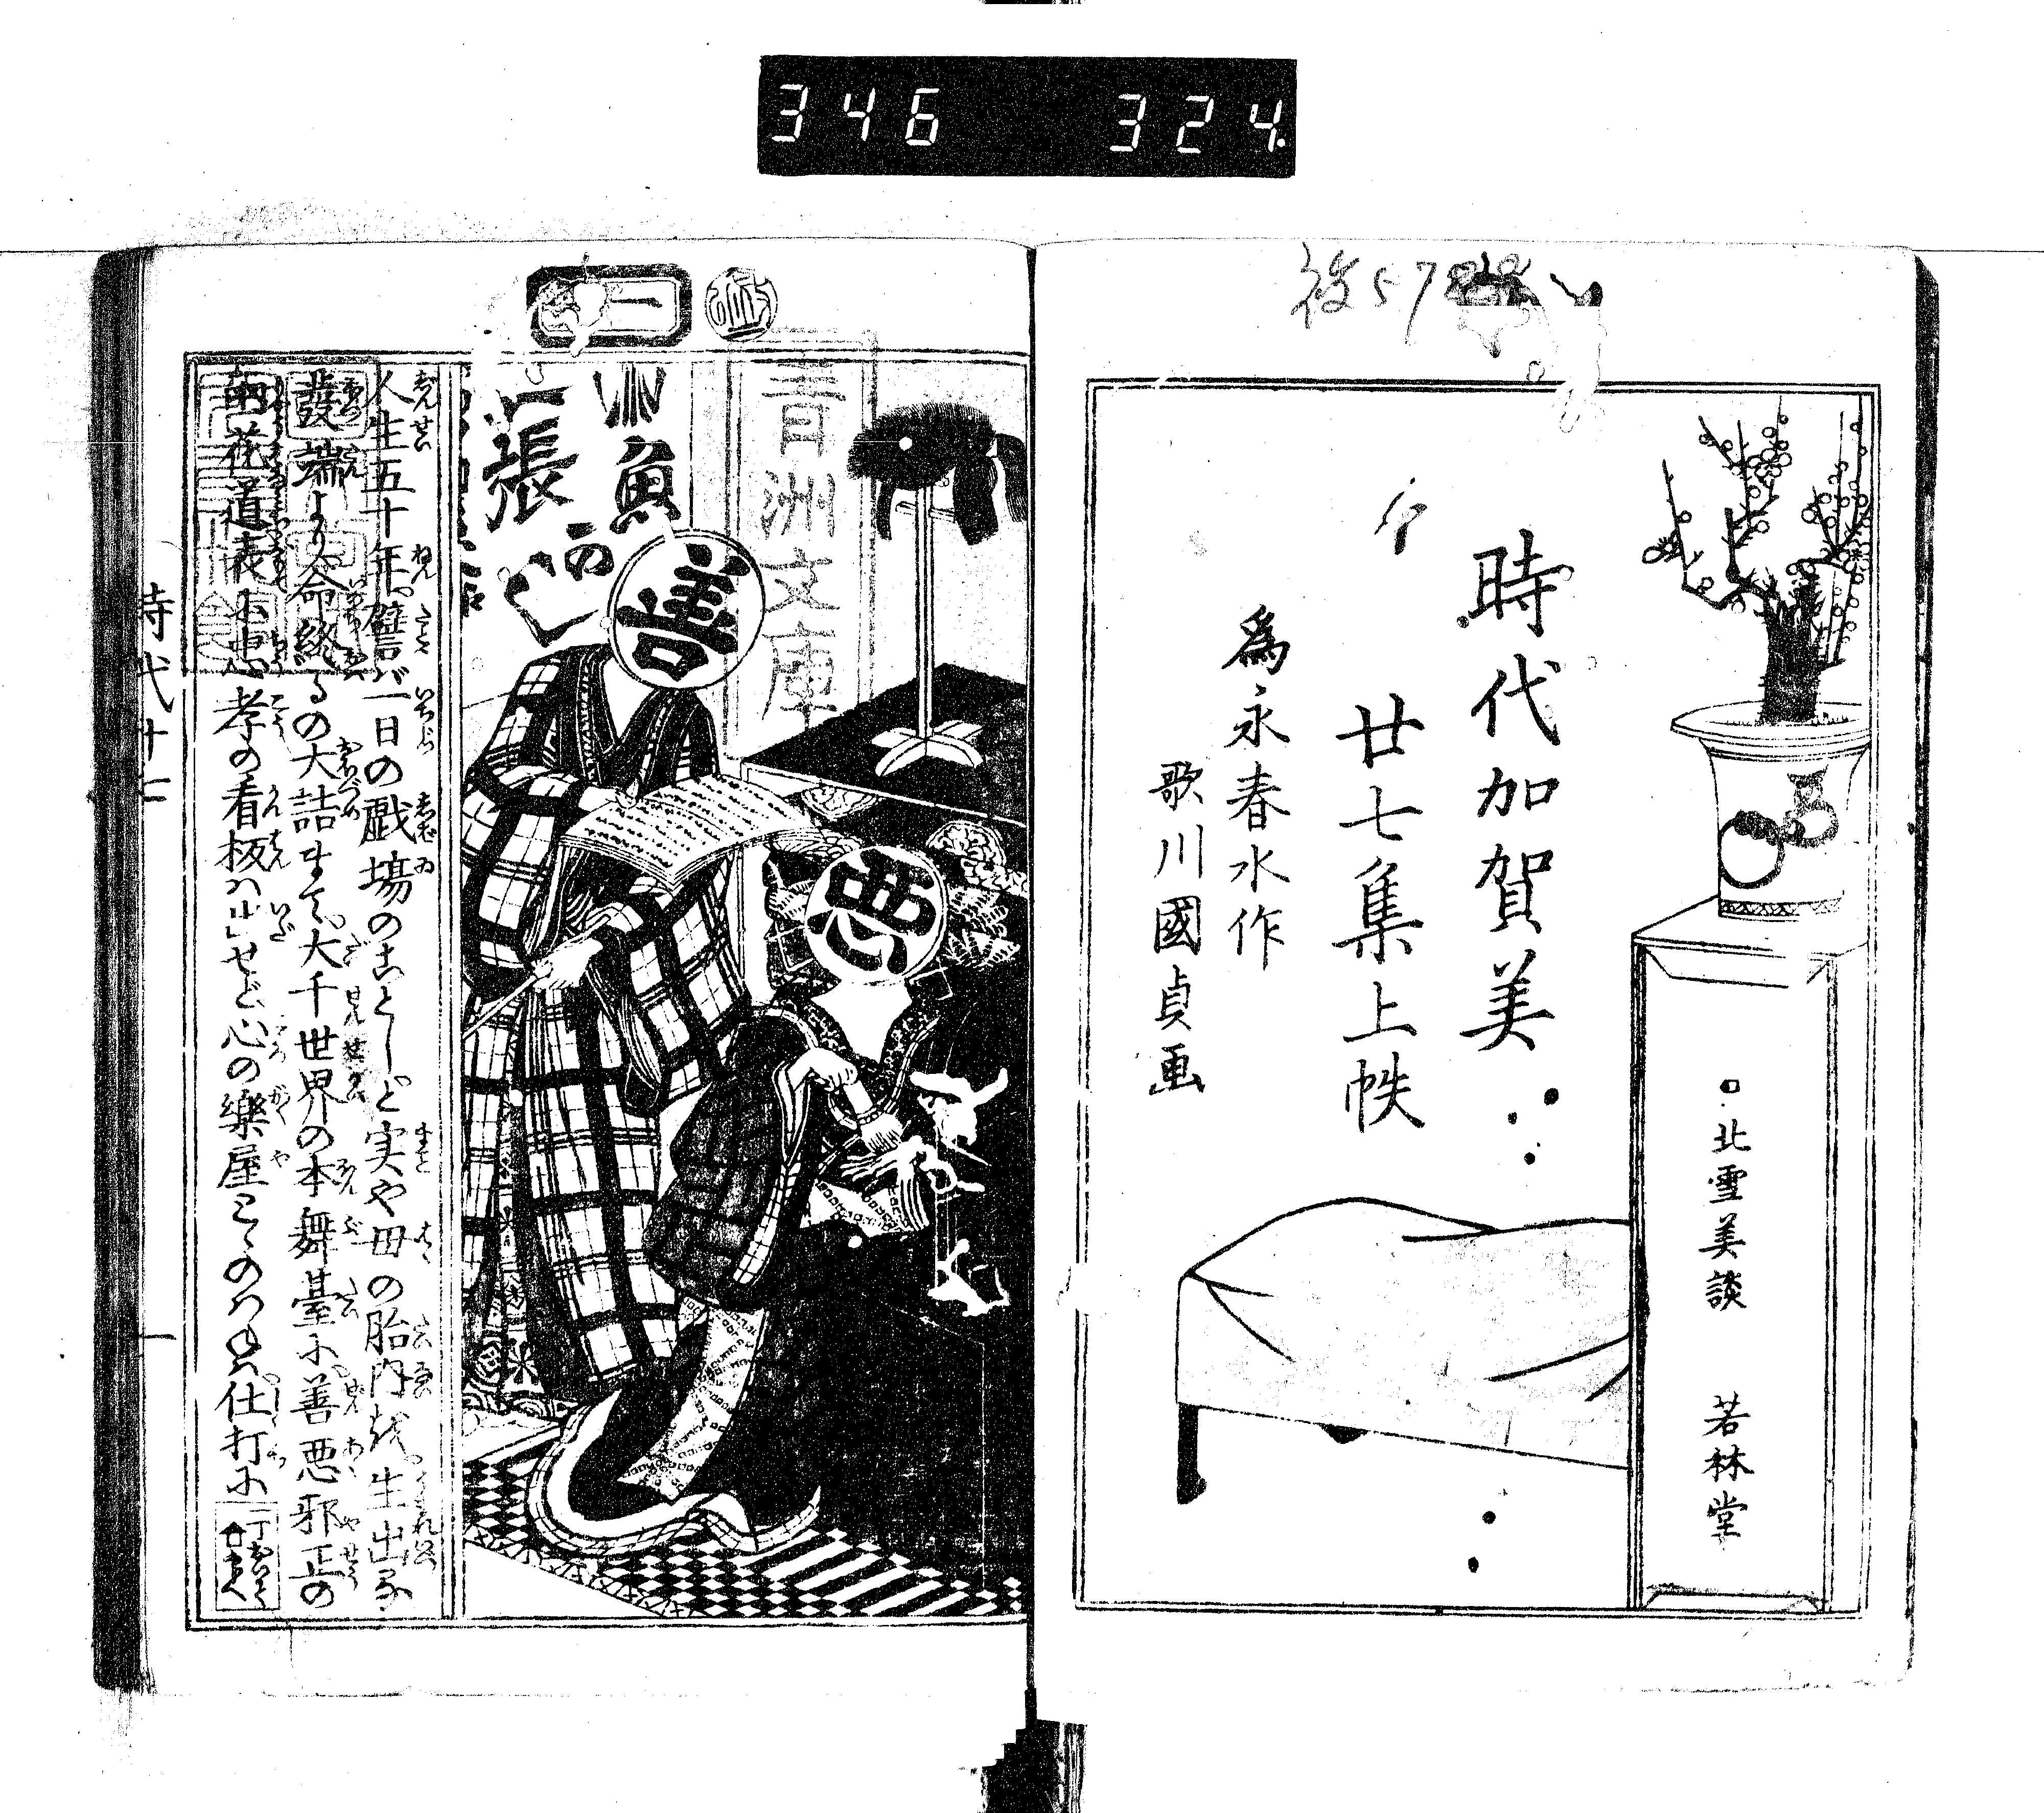 346 324
後57
北雪美談 若林堂
時代加賀美
廿七集上帙
為永春水作
歌川國貞画
一
青洲文庫
魚
張
の
善
悪
人生五十年譬ば一日の戯場のごとしと実や母の胎内を生出る
発端より命終るの大詰まで大千世界の本舞臺に善悪邪正の
花道表に忠孝の看板は出せど心の樂屋
仕打に
時代廿七
一